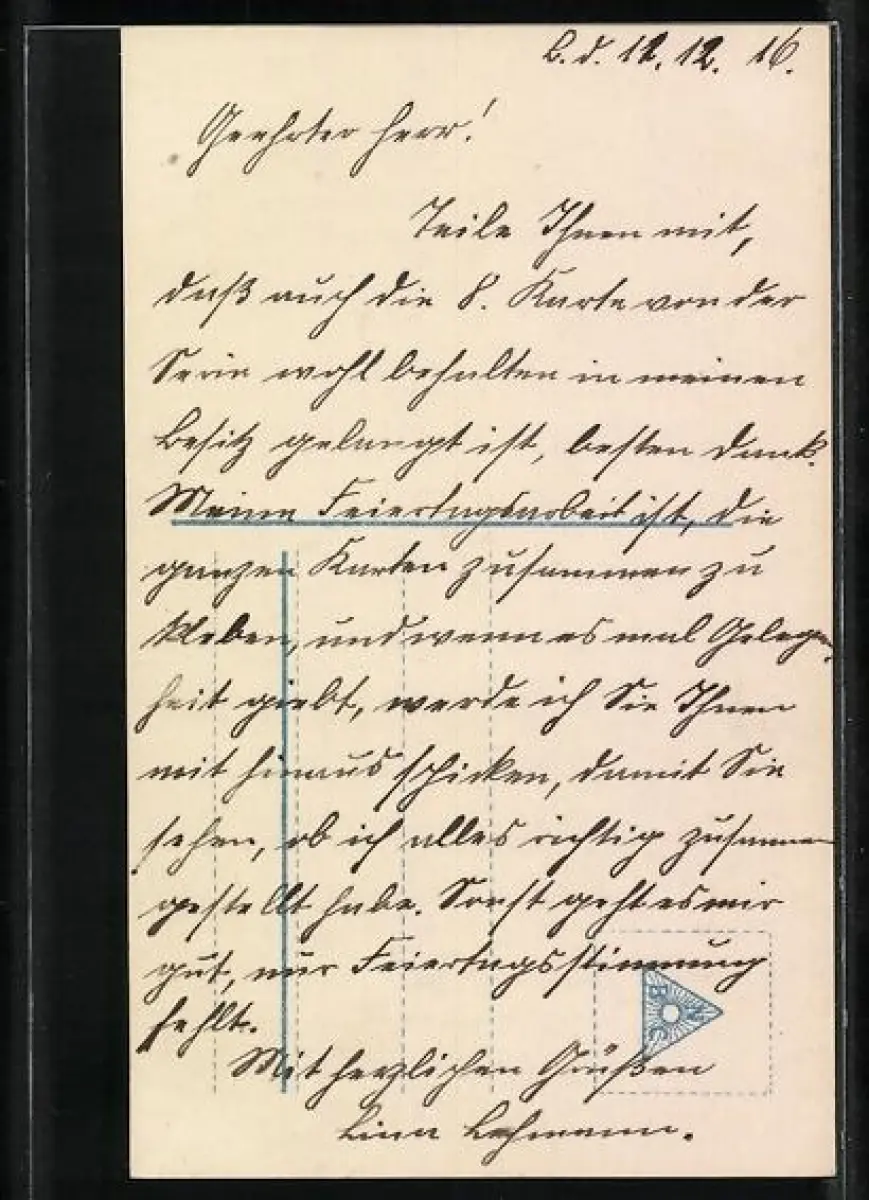 B. d. 12. 12. 16.
Geehrter Herr!
Teile Ihnen mit,
daß auch die 8. Karte von der
Serie wohl behalten in meinen
Besitz gelangt ist, besten Dank.
Meine Feiertagsarbeit ist, die
ganzen Karten zusammen zu
kleben, und wenn es mal Gelegen-
heit giebt, werde ich Sie Ihnen
mit hinaus schicken, damit Sie
sehen, ob ich alles richtig zusammen
gestellt habe. Sonst geht es mir
gut, nur Feiertagsstimmung
fehlt.
Mit herzlichen Grüßen
Lina Lehmann.